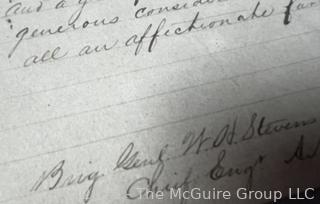 and a g
generous consider
all an affectionate fa
Brig Genl W. H. Stevens
Chief Engr A
The McGuire Group LLC